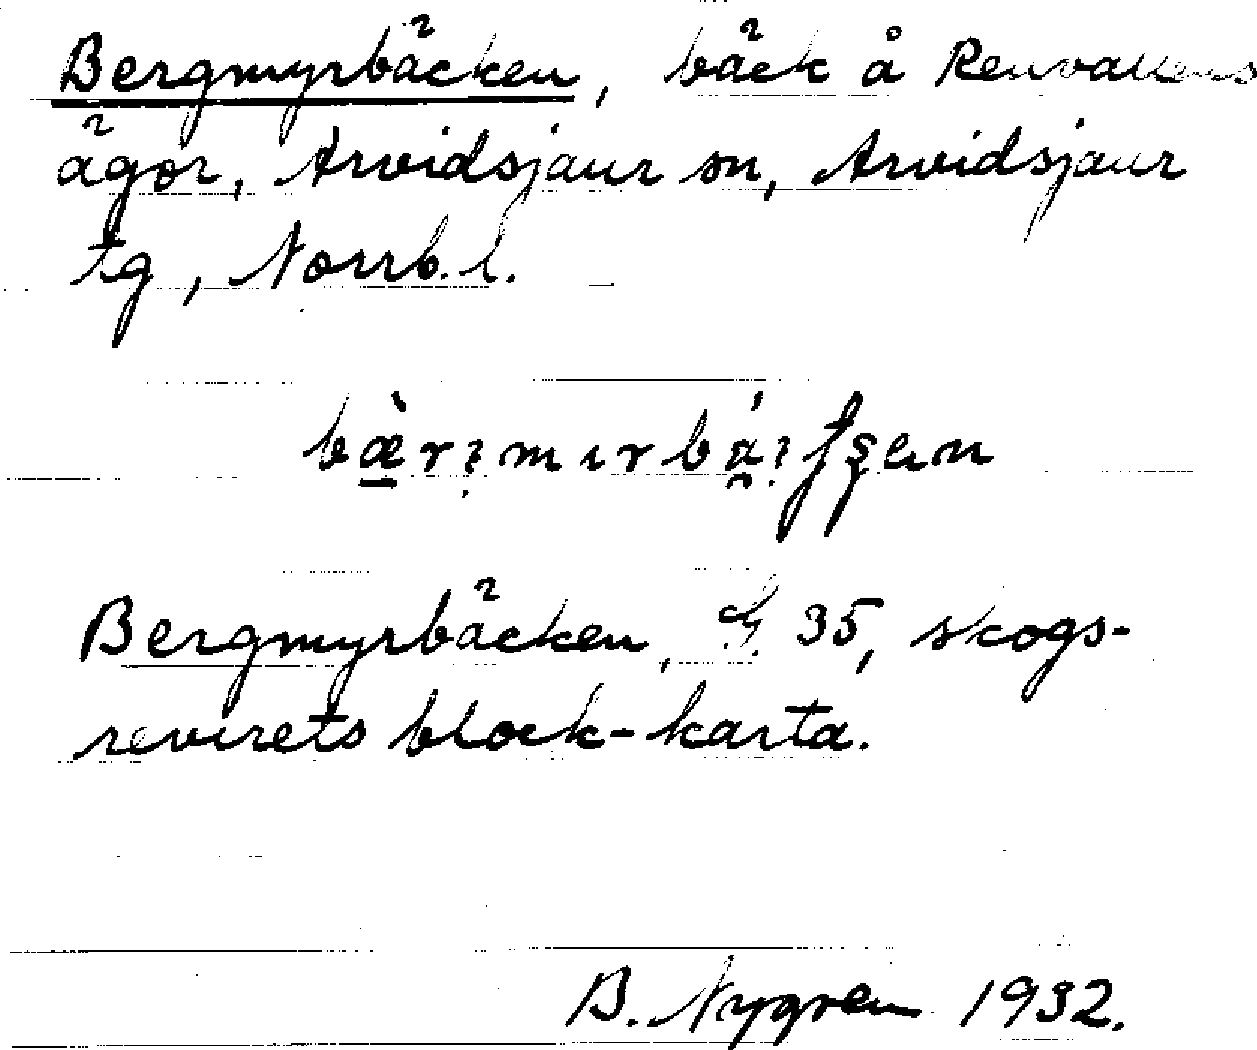 Bergmyrbäcken, bäck å Renvallens
ägor, Arvidsjaur sn, Arvidsjaur
tg, Norrb. l.
Bergmyrbäcken, 35, skogs-
revirets block-karta.
B. Nygren 1932.